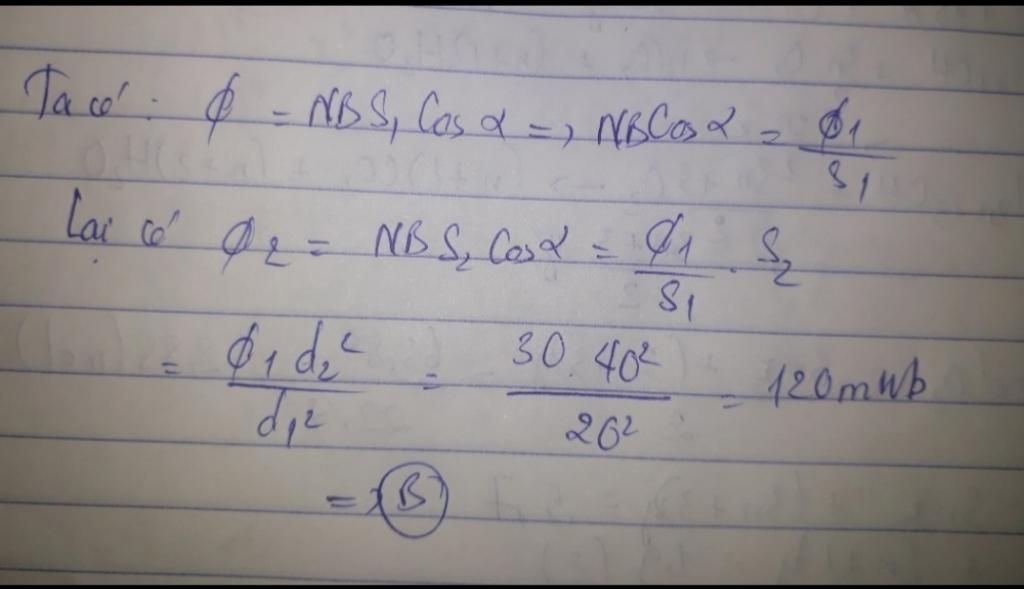 Ta có: Ø = NBS₁ Cos α => NBCos α = Ø1/S1
Lại có Ø2 = NBS₂ Cos α = Ø1/S1 . S2
= Ø1 d₂²/d₁² = 30.40²/20² = 120mWb
=> B